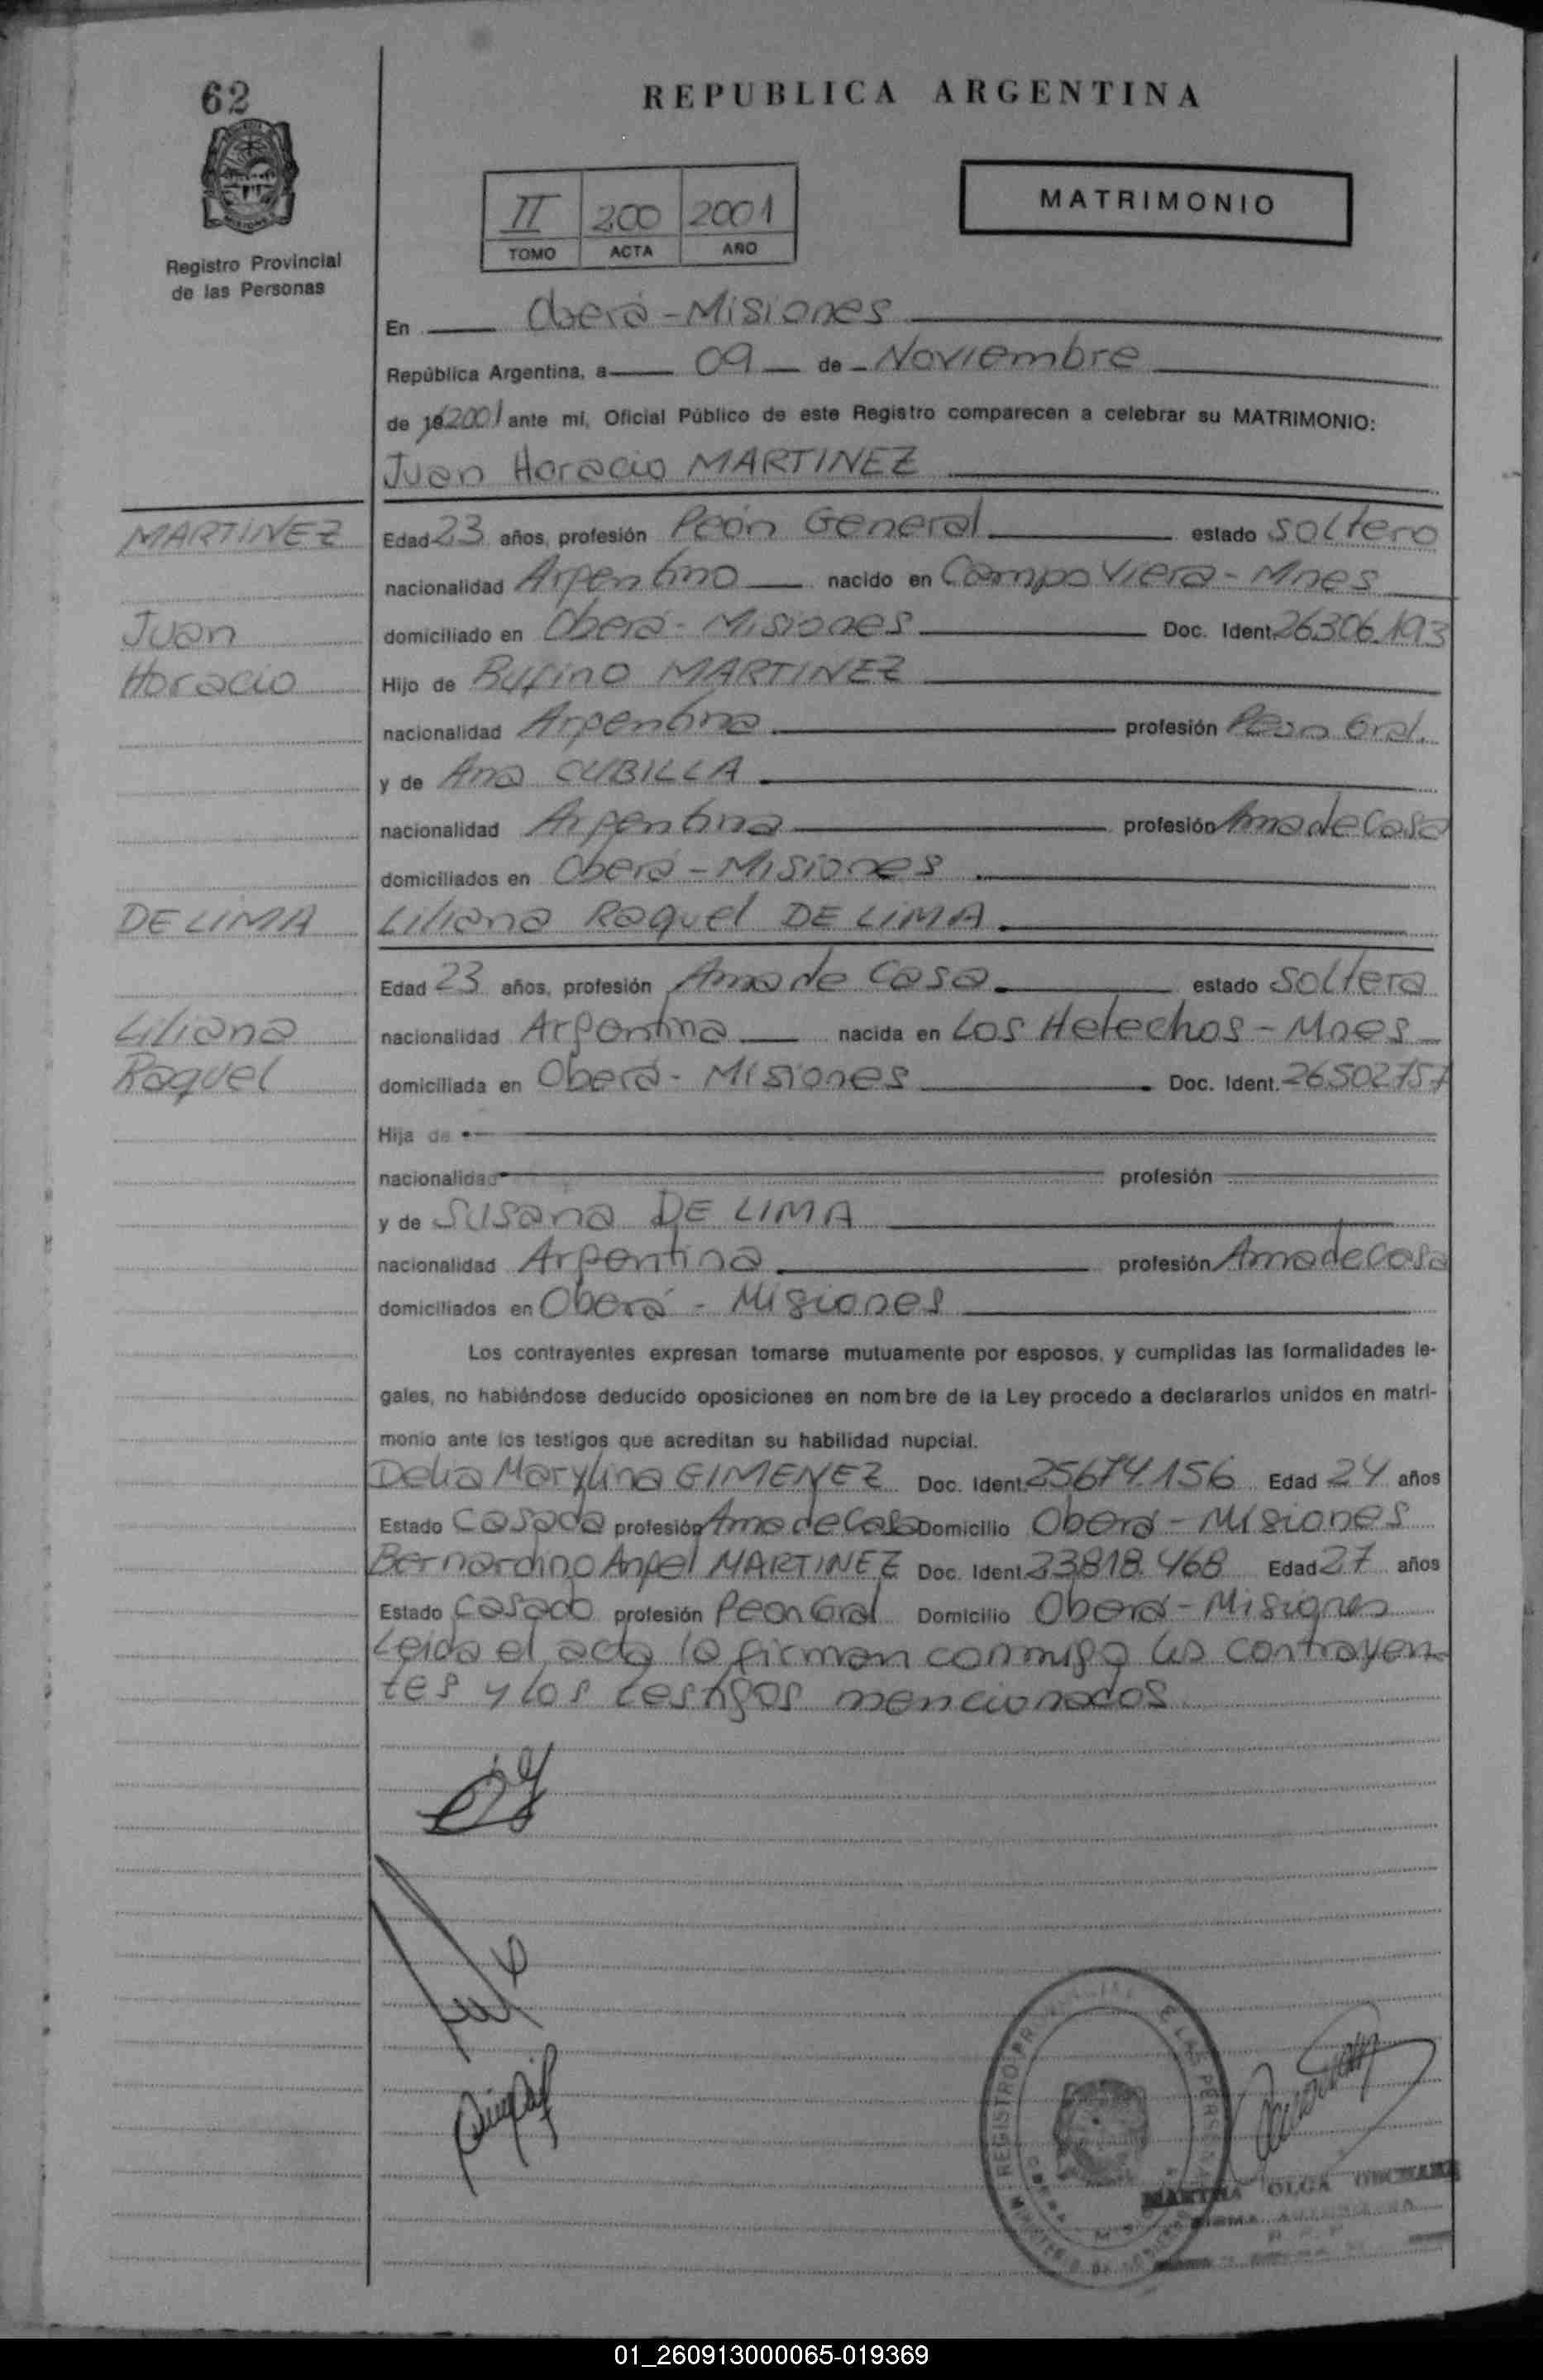 62
REPUBLICA ARGENTINA
II 200 2001
TOMO ACTA AÑO
MATRIMONIO
Registro Provincial
de las Personas
En Oberá - Misiones
República Argentina, a 09 de Noviembre
de 19 2001 ante mi, Oficial Público de este Registro comparecen a celebrar su MATRIMONIO:
Juan Horacio MARTINEZ
MARTINEZ
Edad 23 años, profesión Peón General estado Soltero
nacionalidad Argentino nacido en Campo Viera - Mnes
Juan
domiciliado en Oberá - Misiones Doc. Ident. 26.306.193
Horacio
Hijo de Rufino MARTINEZ
nacionalidad Argentina profesión Peon Gral.
y de Ana CUBILLA
nacionalidad Argentina profesión Ama de Casa
domiciliados en Oberá - Misiones
DE LIMA
Liliana Raquel DE LIMA
Edad 23 años, profesión Ama de Casa estado Soltera
Liliana
nacionalidad Argentina nacida en Los Helechos - Mnes
Raquel
domiciliada en Oberá - Misiones Doc. Ident. 26.502.757
Hija de
nacionalidad profesión
y de Susana DE LIMA
nacionalidad Argentina profesión Ama de Casa
domiciliados en Oberá - Misiones
Los contrayentes expresan tomarse mutuamente por esposos, y cumplidas las formalidades le-
gales, no habiéndose deducido oposiciones en nombre de la Ley procedo a declararlos unidos en matri-
monio ante los testigos que acreditan su habilidad nupcial.
Delia Marylina GIMENEZ Doc. Ident. 25.674.156 Edad 24 años
Estado Casada profesión Ama de Casa Domicilio Oberá - Misiones
Bernardino Angel MARTINEZ Doc. Ident. 23.818.468 Edad 27 años
Estado Casado profesión Peon Gral Domicilio Oberá - Misiones
Leida el acta la firman conmigo los contrayen-
tes y los testigos mencionados
REGISTRO DE LAS
MARTHA OLGA
01_260913000065-019369